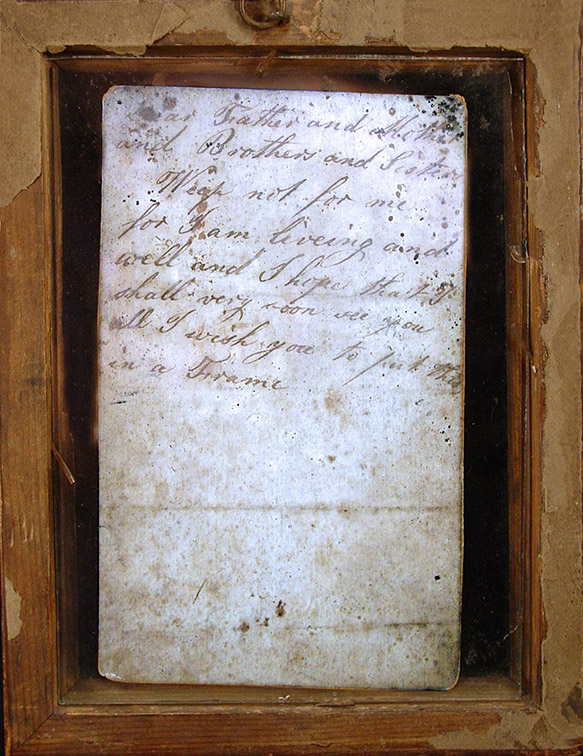 Dear Father and Mother
and Brothers and Sisters
Weep not for me
for I am liveing and
well and I hope that I
shall very soon see you
all I wish you to put this
in a Frame